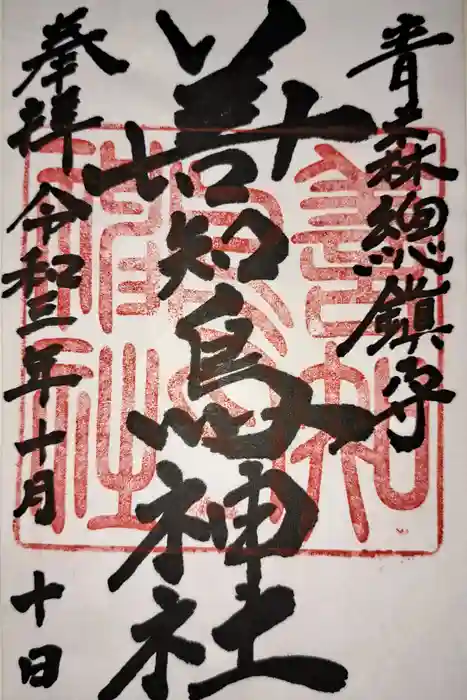 青森總鎮守
善知鳥神社
奉拝
令和三年十月
十日